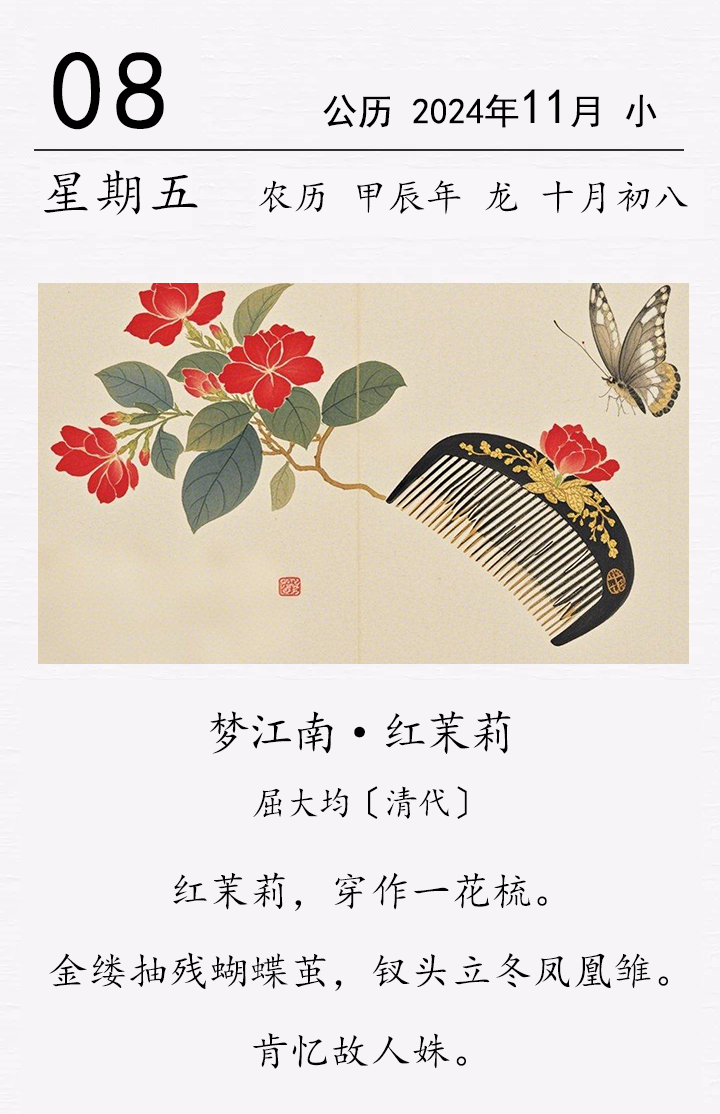 08
公历 2024年11月 小
星期五 农历 甲辰年 龙 十月初八
梦江南·红茉莉
屈大均〔清代〕
红茉莉，穿作一花梳。
金缕抽残蝴蝶茧，钗头立冬凤凰雏。
肯忆故人姝。